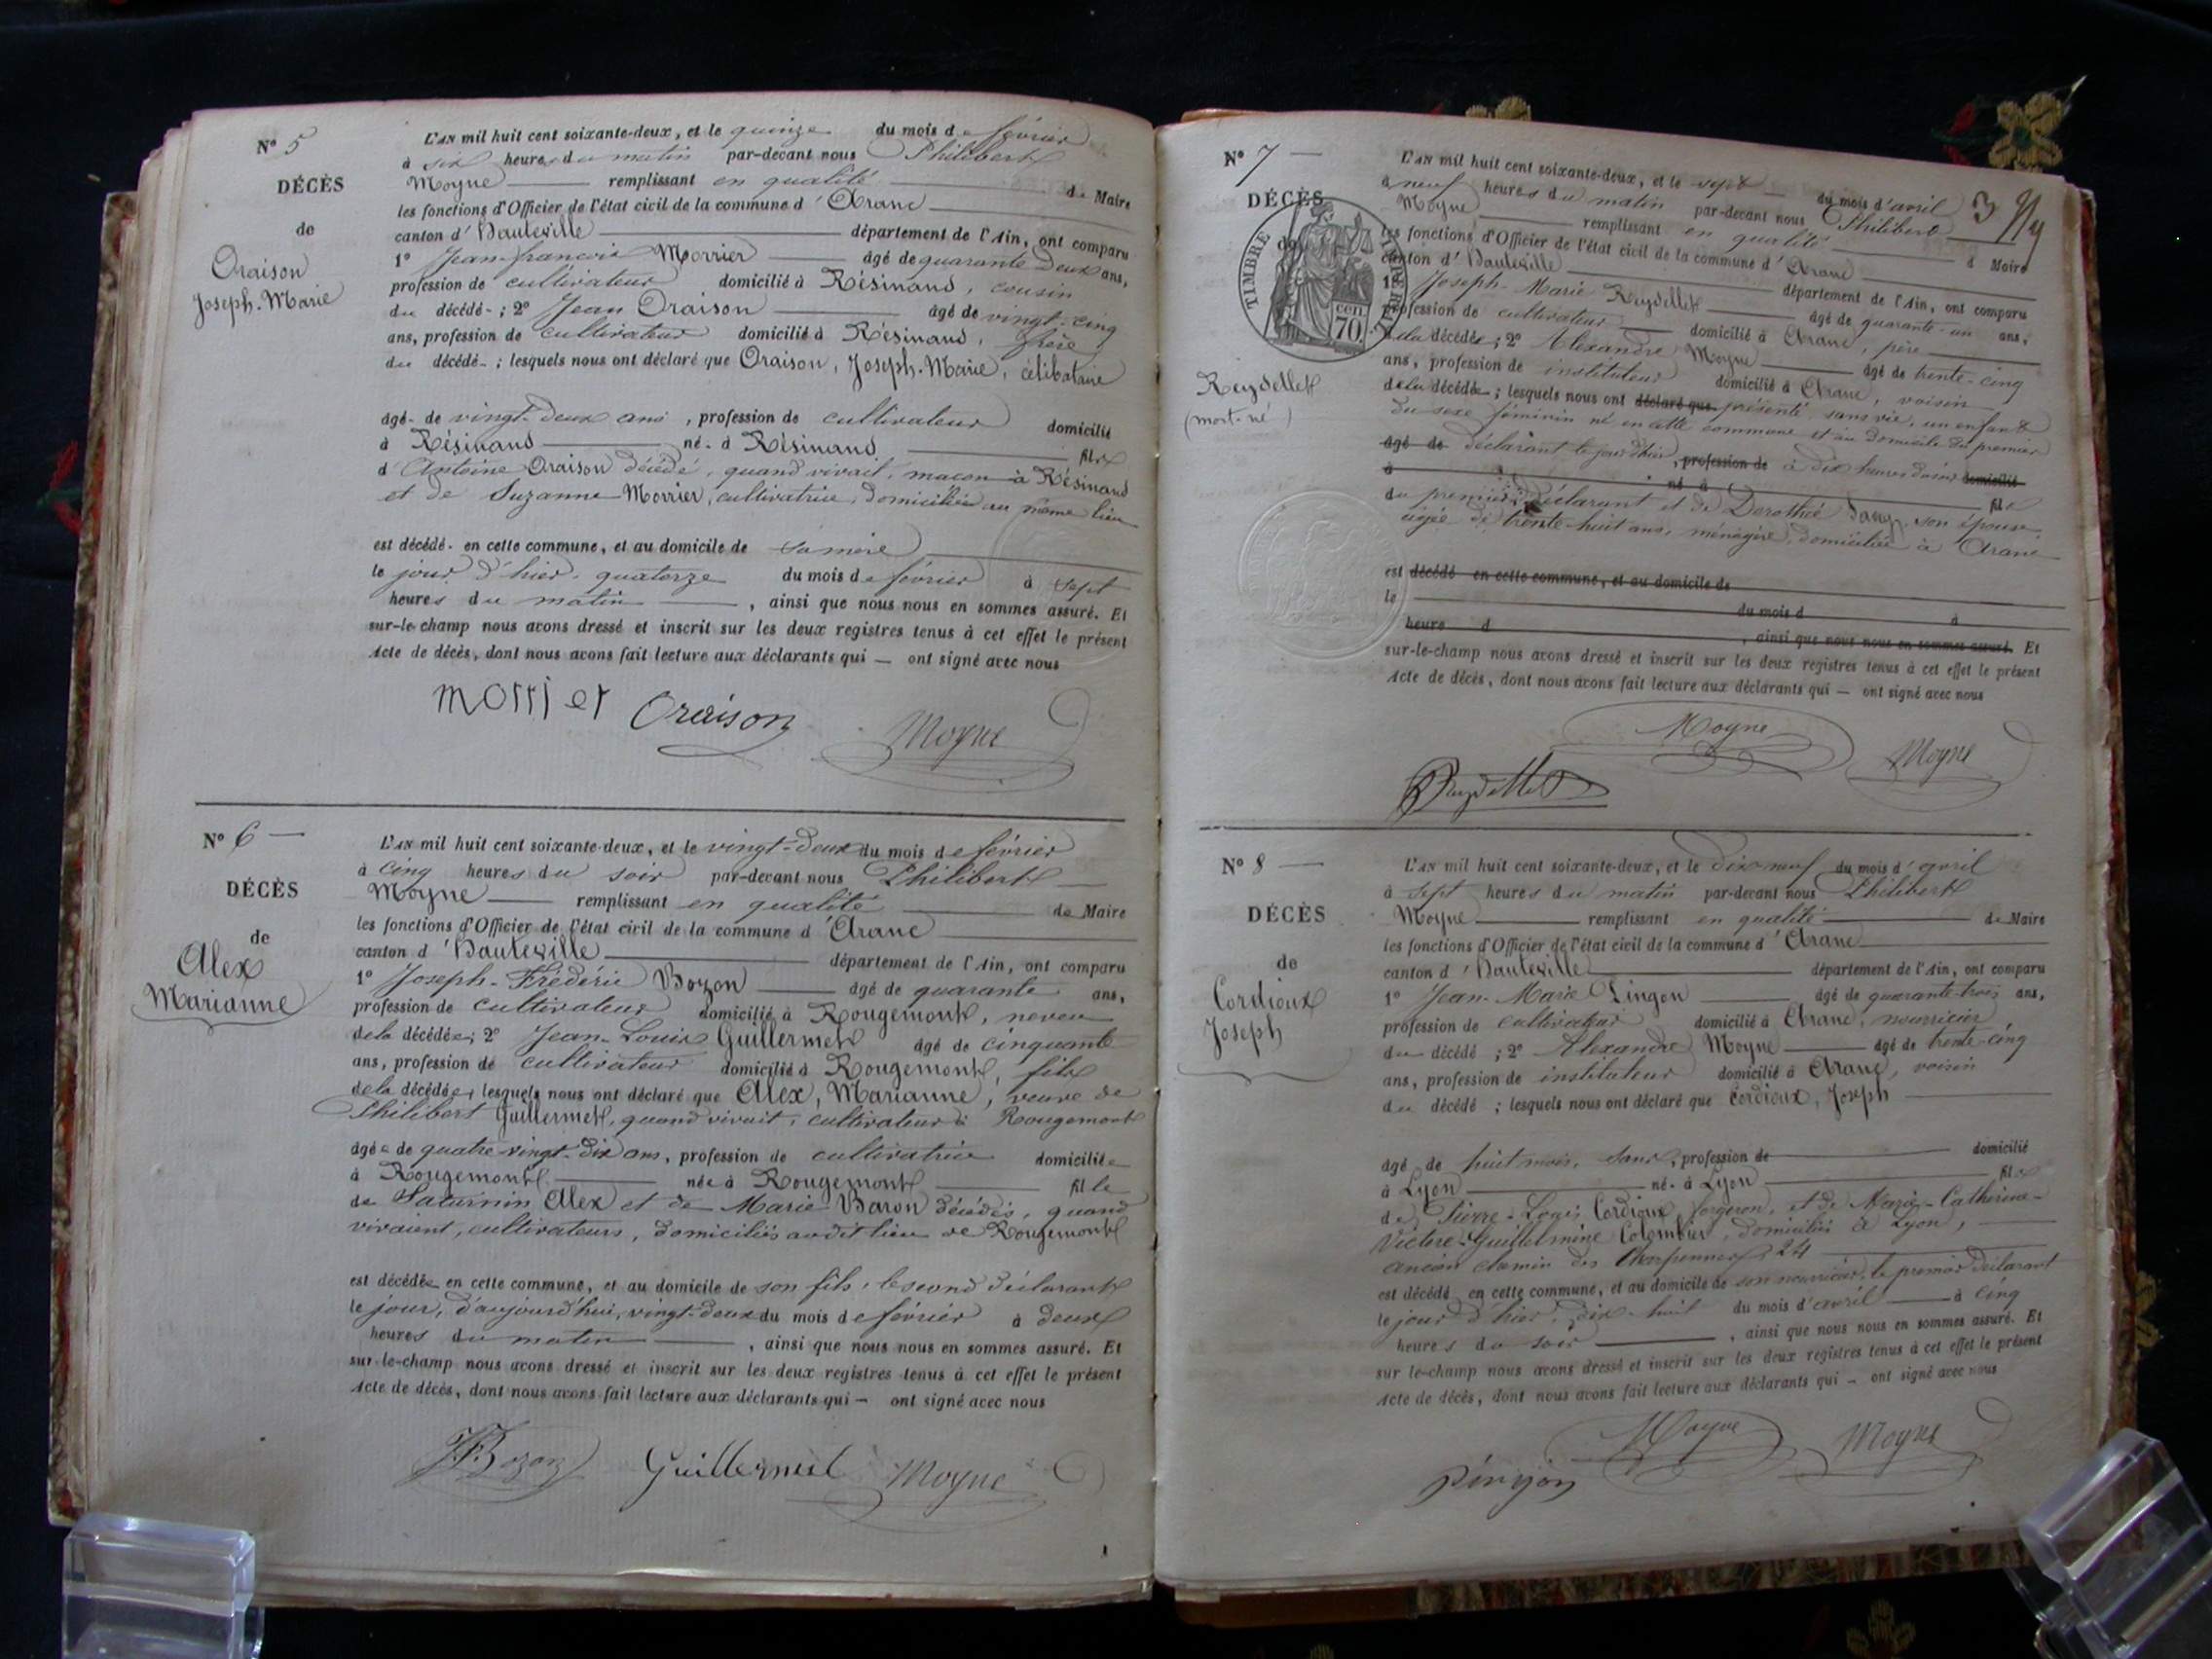 N° 5
DÉCÈS
de
Oraison
Joseph-Marie
L'AN mil huit cent soixante-deux, et le quinze du mois de février
à six heures du matin par-devant nous Philibert
Moyne remplissant en qualité de Maire
les fonctions d'Officier de l'état civil de la commune d'Aranc
canton d'Hauteville département de l'Ain, ont comparu
1° Jean-françois Morrier âgé de quarante deux ans,
profession de cultivateur domicilié à Résinand, cousin
du décédé ; 2° Jean Oraison âgé de vingt-cinq
ans, profession de cultivateur domicilié à Résinand, frère
du décédé ; lesquels nous ont déclaré que Oraison, Joseph-Marie, célibataire
âgé de vingt-deux ans, profession de cultivateur domicilié
à Résinand né à Résinand fils
d'Antoine Oraison décédé, quand vivait, maçon à Résinand
et de Suzanne Morrier, cultivatrice, domiciliée au même lieu
est décédé en cette commune, et au domicile de sa mère
le jour d'hier, quatorze du mois de février à sept
heures du matin, ainsi que nous nous en sommes assuré. Et
sur-le-champ nous avons dressé et inscrit sur les deux registres tenus à cet effet le présent
Acte de décès, dont nous avons fait lecture aux déclarants qui — ont signé avec nous
morrier Oraison Moyne
N° 6
DÉCÈS
de
Alex
Marianne
L'AN mil huit cent soixante-deux, et le vingt-deux du mois de février
à cinq heures du soir par-devant nous Philibert
Moyne remplissant en qualité de Maire
les fonctions d'Officier de l'état civil de la commune d'Aranc
canton d'Hauteville département de l'Ain, ont comparu
1° Joseph-Frédéric Bozon âgé de quarante ans,
profession de cultivateur domicilié à Rougemont, neveu
de la décédée ; 2° Jean-Louis Guillermet âgé de cinquante
ans, profession de cultivateur domicilié à Rougemont, fils
de la décédée, lesquels nous ont déclaré que Alex, Marianne, veuve de
Philibert Guillermet, quand vivait, cultivateur à Rougemont
âgée de quatre-vingt-dix ans, profession de cultivatrice domiciliée
à Rougemont née à Rougemont fille
de Saturnin Alex et de Marie Baron décédés, quand
vivaient, cultivateurs, domiciliés audit lieu de Rougemont
est décédée en cette commune, et au domicile de son fils, le second déclarant
le jour, d'aujourd'hui, vingt-deux du mois de février à deux
heures du matin, ainsi que nous nous en sommes assuré. Et
sur-le-champ nous avons dressé et inscrit sur les deux registres tenus à cet effet le présent
Acte de décès, dont nous avons fait lecture aux déclarants qui — ont signé avec nous
JF Bozon Guillermet Moyne
3
N° 7
DÉCÈS
de
TIMBRE IMPÉRIAL
70 cen.
Reydellet
(mort-né)
L'AN mil huit cent soixante-deux, et le sept du mois d'avril
à neuf heures du matin par-devant nous Philibert
Moyne remplissant en qualité d Maire
les fonctions d'Officier de l'état civil de la commune d'Aranc
canton d'Hauteville département de l'Ain, ont comparu
1° Joseph-Marie Reydellet âgé de quarante-un ans,
profession de cultivateur domicilié à Aranc, père
de la décédée ; 2° Alexandre Moyne âgé de trente-cinq
ans, profession de instituteur domicilié à Aranc, voisin
de la décédée ; lesquels nous ont déclaré que présenté sans vie, un enfant
du sexe féminin né en cette commune et au domicile du premier
âgé de déclarant le jour d'hier, profession de à dix heures du soir domicilié
à né à fille
du premier déclarant et de Dorothé Tany, son épouse
âgée de trente-huit ans, ménagère, domiciliée à Aranc
est décédé en cette commune, et au domicile de
le du mois d à
heure d, ainsi que nous nous en sommes assuré. Et
sur-le-champ nous avons dressé et inscrit sur les deux registres tenus à cet effet le présent
Acte de décès, dont nous avons fait lecture aux déclarants qui — ont signé avec nous
Moyne Moyne
Reydellet
N° 8
DÉCÈS
de
Cordioux
Joseph
L'AN mil huit cent soixante-deux, et le dix-neuf du mois d'avril
à sept heures du matin par-devant nous Philibert
Moyne remplissant en qualité de Maire
les fonctions d'Officier de l'état civil de la commune d'Aranc
canton d'Hauteville département de l'Ain, ont comparu
1° Jean-Marie Pingon âgé de quarante-trois ans,
profession de cultivateur domicilié à Aranc, nourricier
du décédé ; 2° Alexandre Moyne âgé de trente-cinq
ans, profession de instituteur domicilié à Aranc, voisin
du décédé ; lesquels nous ont déclaré que Cordioux, Joseph
âgé de huit mois, sans, profession de domicilié
à Lyon né à Lyon fils
de Pierre-Louis Cordioux, forgeron, et de Marie-Catherine-
Victore-Guillelmine Colombier, domiciliés à Lyon,
ancien chemin des Charpennes, 24
est décédé en cette commune, et au domicile de son nourricier, le premier déclarant
le jour d'hier, dix-huit du mois d'avril à cinq
heures du soir, ainsi que nous nous en sommes assuré. Et
sur le-champ nous avons dressé et inscrit sur les deux registres tenus à cet effet le présent
Acte de décès, dont nous avons fait lecture aux déclarants qui — ont signé avec nous
Moyne Moyne
pingon